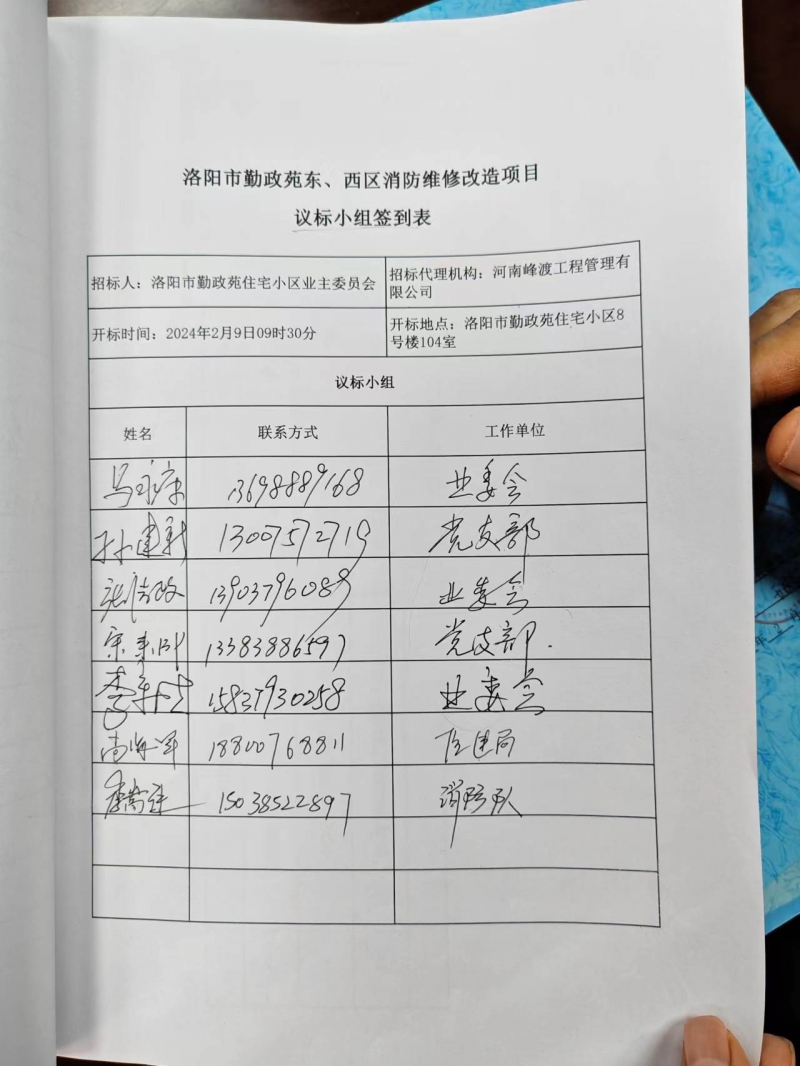 洛阳市勤政苑东、西区消防维修改造项目
议标小组签到表
招标人：洛阳市勤政苑住宅小区业主委员会
招标代理机构：河南峰渡工程管理有
限公司
开标时间：2024年2月9日09时30分
开标地点：洛阳市勤政苑住宅小区8
号楼104室
议标小组
姓名 联系方式 工作单位
13698889168 业委会
孙建新 13007572719 党支部
13903796089 业委会
13383886597 党支部.
李 15837930258 业委会
尚海军 18800768811 住建局
李 15038522897 消防队